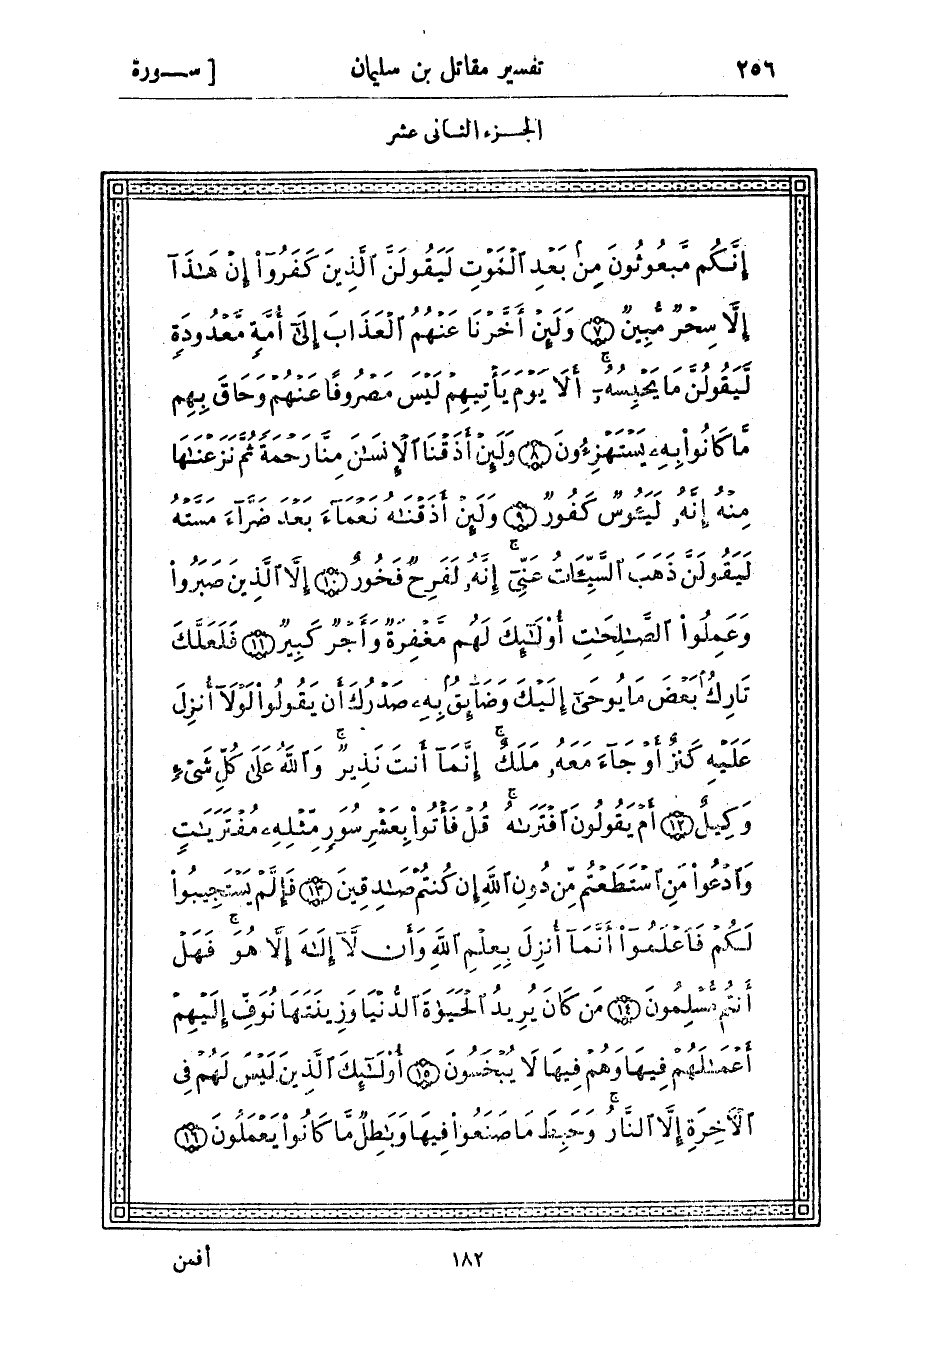 ٢٥٦ تفسير مقاتل بن سليمان [ ســورة
الجزء الثانى عشر
إِنَّكُم مَّبْعُوثُونَ مِنۢ بَعْدِ ٱلْمَوْتِ لَيَقُولَنَّ ٱلَّذِينَ كَفَرُوٓا۟ إِنْ هَـٰذَآ
إِلَّا سِحْرٌ مُّبِينٌ ﴿٧﴾ وَلَئِنْ أَخَّرْنَا عَنْهُمُ ٱلْعَذَابَ إِلَىٰٓ أُمَّةٍ مَّعْدُودَةٍ
لَّيَقُولُنَّ مَا يَحْبِسُهُۥٓ ۗ أَلَا يَوْمَ يَأْتِيهِمْ لَيْسَ مَصْرُوفًا عَنْهُمْ وَحَاقَ بِهِم
مَّا كَانُوا۟ بِهِۦ يَسْتَهْزِءُونَ ﴿٨﴾ وَلَئِنْ أَذَقْنَا ٱلْإِنسَـٰنَ مِنَّا رَحْمَةً ثُمَّ نَزَعْنَـٰهَا
مِنْهُ إِنَّهُۥ لَيَـُٔوسٌ كَفُورٌ ﴿٩﴾ وَلَئِنْ أَذَقْنَـٰهُ نَعْمَآءَ بَعْدَ ضَرَّآءَ مَسَّتْهُ
لَيَقُولَنَّ ذَهَبَ ٱلسَّيِّـَٔاتُ عَنِّىٓ ۚ إِنَّهُۥ لَفَرِحٌ فَخُورٌ ﴿١٠﴾ إِلَّا ٱلَّذِينَ صَبَرُوا۟
وَعَمِلُوا۟ ٱلصَّـٰلِحَـٰتِ أُو۟لَـٰٓئِكَ لَهُم مَّغْفِرَةٌ وَأَجْرٌ كَبِيرٌ ﴿١١﴾ فَلَعَلَّكَ
تَارِكٌۢ بَعْضَ مَا يُوحَىٰٓ إِلَيْكَ وَضَآئِقٌۢ بِهِۦ صَدْرُكَ أَن يَقُولُوا۟ لَوْلَآ أُنزِلَ
عَلَيْهِ كَنزٌ أَوْ جَآءَ مَعَهُۥ مَلَكٌ ۚ إِنَّمَآ أَنتَ نَذِيرٌ ۚ وَٱللَّهُ عَلَىٰ كُلِّ شَىْءٍ
وَكِيلٌ ﴿١٢﴾ أَمْ يَقُولُونَ ٱفْتَرَىٰهُ ۖ قُلْ فَأْتُوا۟ بِعَشْرِ سُوَرٍ مِّثْلِهِۦ مُفْتَرَيَـٰتٍ
وَٱدْعُوا۟ مَنِ ٱسْتَطَعْتُم مِّن دُونِ ٱللَّهِ إِن كُنتُمْ صَـٰدِقِينَ ﴿١٣﴾ فَإِلَّمْ يَسْتَجِيبُوا۟
لَكُمْ فَٱعْلَمُوٓا۟ أَنَّمَآ أُنزِلَ بِعِلْمِ ٱللَّهِ وَأَن لَّآ إِلَـٰهَ إِلَّا هُوَ ۖ فَهَلْ
أَنتُم مُّسْلِمُونَ ﴿١٤﴾ مَن كَانَ يُرِيدُ ٱلْحَيَوٰةَ ٱلدُّنْيَا وَزِينَتَهَا نُوَفِّ إِلَيْهِمْ
أَعْمَـٰلَهُمْ فِيهَا وَهُمْ فِيهَا لَا يُبْخَسُونَ ﴿١٥﴾ أُو۟لَـٰٓئِكَ ٱلَّذِينَ لَيْسَ لَهُمْ فِى
ٱلْـَٔاخِرَةِ إِلَّا ٱلنَّارُ ۖ وَحَبِطَ مَا صَنَعُوا۟ فِيهَا وَبَـٰطِلٌ مَّا كَانُوا۟ يَعْمَلُونَ ﴿١٦﴾
١٨٢ أفمن